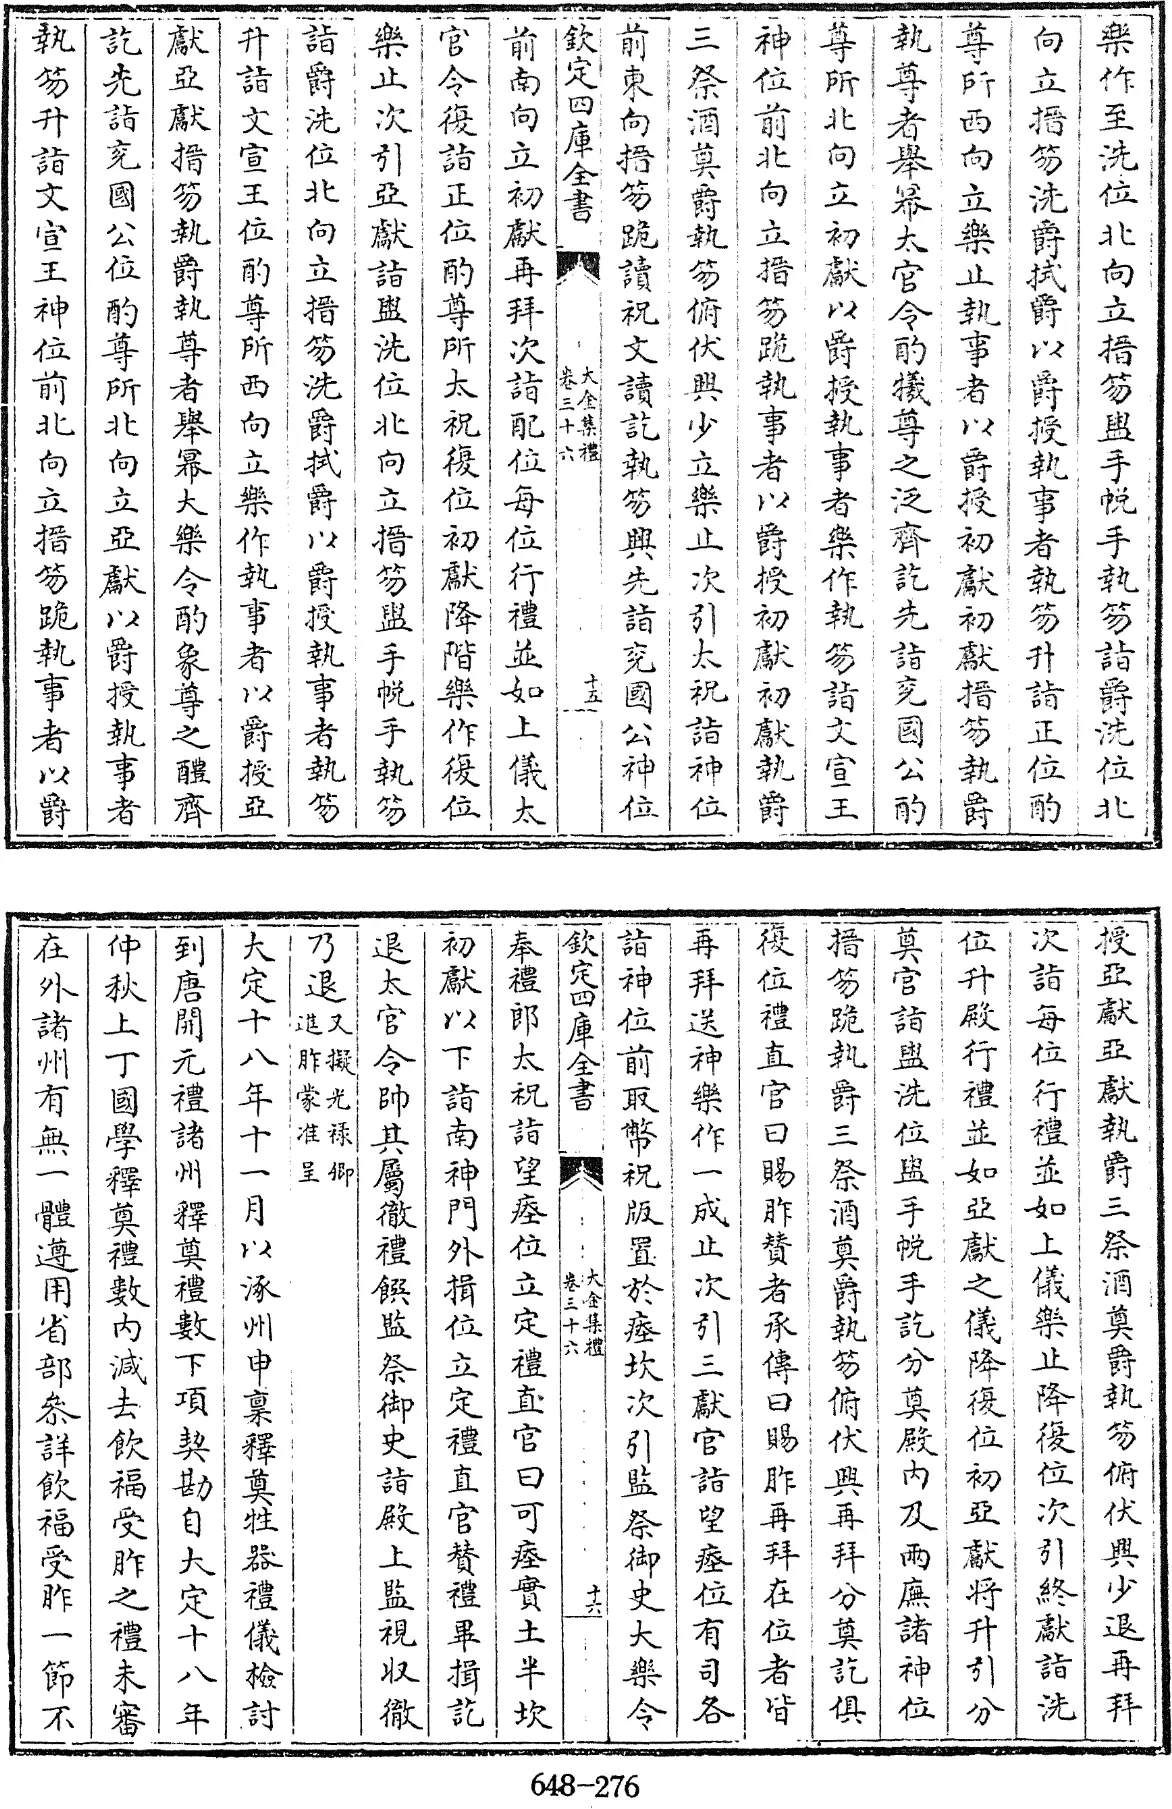 樂作至洗位北向立搢笏盥手帨手執笏詣爵洗位北
向立搢笏洗爵拭爵以爵授執事者執笏升詣正位酌
尊所西向立樂止執事者以爵授初獻初獻搢笏執爵
執尊者舉冪太官令酌犧尊之泛齊訖先詣兖國公酌
尊所北向立初獻以爵授執事者樂作執笏詣文宣王
神位前北向立搢笏跪執事者以爵授初獻初獻執爵
三祭酒奠爵執笏俯伏興少立樂止次引太祝詣神位
前東向搢笏跪讀祝文讀訖執笏興先詣兖國公神位
欽定四庫全書
大金集禮
卷三十六
十五
前南向立初獻再拜次詣配位每位行禮並如上儀太
官令復詣正位酌尊所太祝復位初獻降階樂作復位
樂止次引亞獻詣盥洗位北向立搢笏盥手帨手執笏
詣爵洗位北向立搢笏洗爵拭爵以爵授執事者執笏
升詣文宣王位酌尊所西向立樂作執事者以爵授亞
獻亞獻搢笏執爵執尊者舉冪大樂令酌象尊之醴齊
訖先詣兖國公位酌尊所北向立亞獻以爵授執事者
執笏升詣文宣王神位前北向立搢笏跪執事者以爵
授亞獻亞獻執爵三祭酒奠爵執笏俯伏興少退再拜
次詣每位行禮並如上儀樂止降復位次引終獻詣洗
位升殿行禮並如亞獻之儀降復位初亞獻將升引分
奠官詣盥洗位盥手帨手訖分奠殿内及兩廡諸神位
搢笏跪執爵三祭酒奠爵執笏俯伏興再拜分奠訖俱
復位禮直官曰賜胙賛者承傳曰賜胙再拜在位者皆
再拜送神樂作一成止次引三獻官詣望瘞位有司各
詣神位前取幣祝版置於瘞坎次引監祭御史大樂令
欽定四庫全書
大金集禮
卷三十六
十六
奉禮郎太祝詣望瘞位立定禮直官曰可瘞實土半坎
初獻以下詣南神門外揖位立定禮直官賛禮畢揖訖
退太官令帥其屬徹禮饌監祭御史詣殿上監視收徹
乃退又擬光禄卿進胙蒙准呈
大定十八年十一月以涿州申稟釋奠牲器禮儀檢討
到唐開元禮諸州釋奠禮數下項契勘自大定十八年
仲秋上丁國學釋奠禮數内減去飲福受胙之禮未審
在外諸州有無一體遵用省部叅詳飲福受胙一節不
648-276